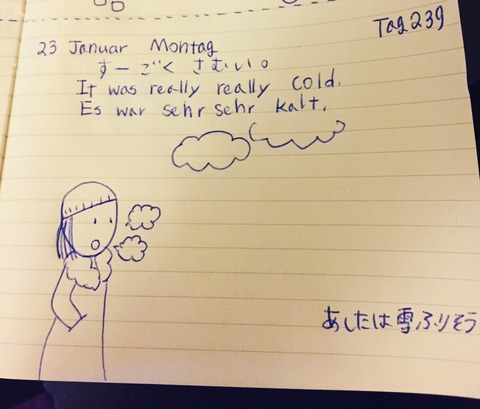 Tag 239
23 Januar Montag
すーごくさむいい。
It was really really cold.
Es war sehr sehr kalt.
あしたは雪ふりそう